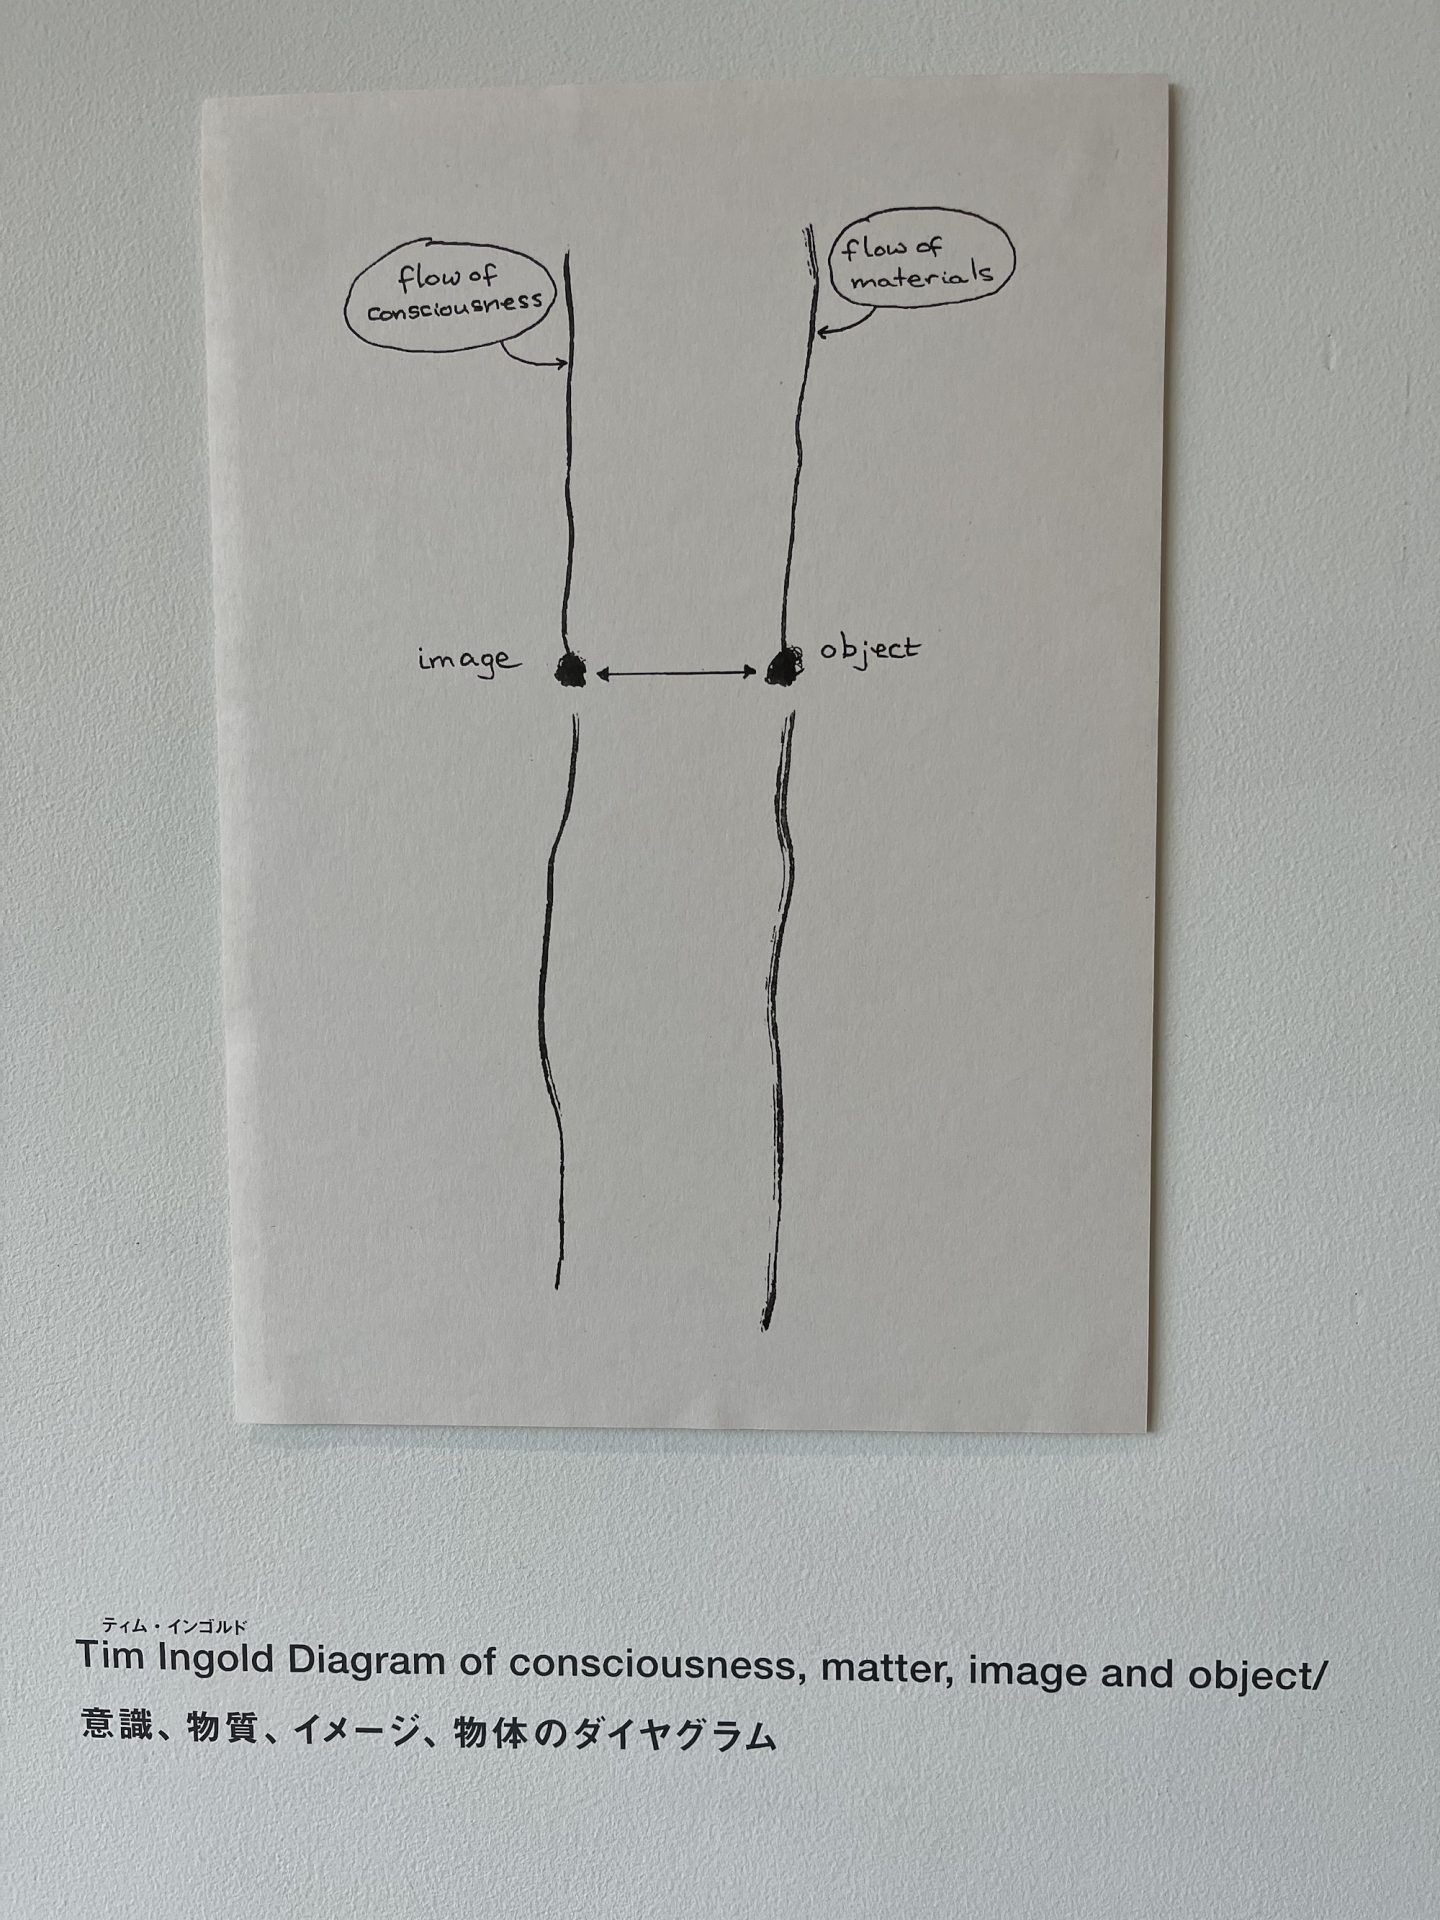 flow of
consciousness
flow of
materials
image
object
ティム・インゴルド
Tim Ingold Diagram of consciousness, matter, image and object/
意識、物質、イメージ、物体のダイヤグラム